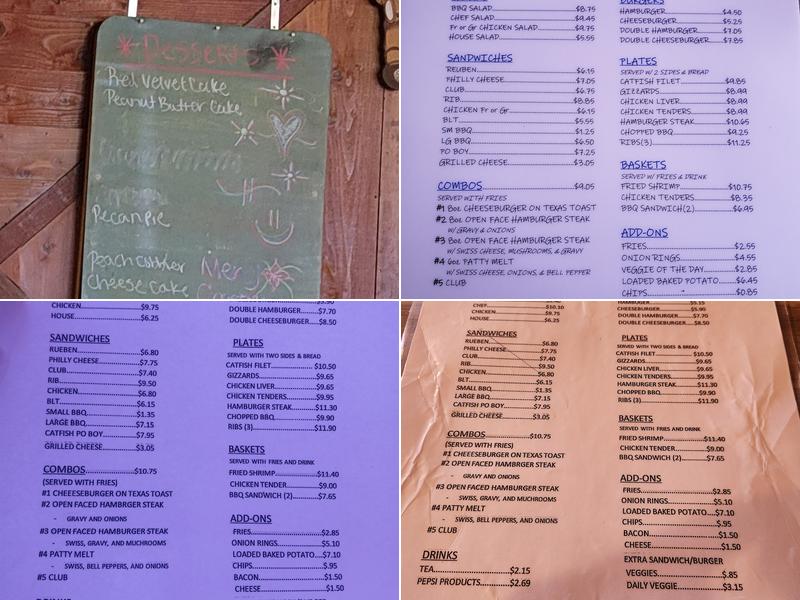 Desserts
Red Velvet Cake
Peanut Butter Cake
Pecan Pie
Peach cobbler
Cheese Cake
BBQ SALAD $8.75
CHEF SALAD $9.45
Fr or Gr CHICKEN SALAD $9.75
HOUSE SALAD $5.55
SANDWICHES
REUBEN $6.15
PHILLY CHEESE $7.05
CLUB $6.75
RIB $8.85
CHICKEN Fr or Gr $6.15
BLT $5.55
SM BBQ $1.25
LG BBQ $6.50
PO BOY $7.25
GRILLED CHEESE $3.05
COMBOS $9.05
SERVED WITH FRIES
#1 8oz CHEESEBURGER ON TEXAS TOAST
#2 8oz OPEN FACE HAMBURGER STEAK
W/ GRAVY & ONIONS
#3 8oz OPEN FACE HAMBURGER STEAK
W/ SWISS CHEESE, MUSHROOMS, & GRAVY
#4 6oz PATTY MELT
W/ SWISS CHEESE, ONIONS, & BELL PEPPER
#5 CLUB
BURGERS
HAMBURGER $4.50
CHEESEBURGER $5.25
DOUBLE HAMBURGER $7.05
DOUBLE CHEESEBURGER $7.85
PLATES
SERVED W/ 2 SIDES & BREAD
CATFISH FILET $9.85
GIZZARDS $8.99
CHICKEN LIVER $8.99
CHICKEN TENDERS $8.99
HAMBURGER STEAK $10.65
CHOPPED BBQ $9.25
RIBS(3) $11.25
BASKETS
SERVED W/ FRIES & DRINK
FRIED SHRIMP $10.75
CHICKEN TENDERS $8.35
BBQ SANDWICH(2) $6.95
ADD-ONS
FRIES $2.55
ONION RINGS $4.55
VEGGIE OF THE DAY $2.85
LOADED BAKED POTATO $6.45
CHIPS $0.85
CHICKEN $9.75
HOUSE $6.25
SANDWICHES
RUEBEN $6.80
PHILLY CHEESE $7.75
CLUB $7.40
RIB $9.50
CHICKEN $6.80
BLT $6.15
SMALL BBQ $1.35
LARGE BBQ $7.15
CATFISH PO BOY $7.95
GRILLED CHEESE $3.05
COMBOS $10.75
(SERVED WITH FRIES)
#1 CHEEESEBURGER ON TEXAS TOAST
#2 OPEN FACED HAMBRGER STEAK
- GRAVY AND ONIONS
#3 OPEN FACED HAMBURGER STEAK
- SWISS, GRAVY, AND MUCHROOMS
#4 PATTY MELT
- SWISS, BELL PEPPERS, AND ONIONS
#5 CLUB
DOUBLE HAMBURGER $7.70
DOUBLE CHEESEBURGER $8.50
PLATES
SERVED WITH TWO SIDES & BREAD
CATFISH FILET $10.50
GIZZARDS $9.65
CHICKEN LIVER $9.65
CHICKEN TENDERS $9.95
HAMBURGER STEAK $11.30
CHOPPED BBQ $9.90
RIBS (3) $11.90
BASKETS
SERVED WITH FRIES AND DRINK
FRIED SHRIMP $11.40
CHICKEN TENDER $9.00
BBQ SANDWICH (2) $7.65
ADD-ONS
FRIES $2.85
ONION RINGS $5.10
LOADED BAKED POTATO $7.10
CHIPS $.95
BACON $1.50
CHEESE $1.50
CHEF $10.10
CHICKEN $9.75
HOUSE $6.25
SANDWICHES
RUEBEN $6.80
PHILLY CHEESE $7.75
CLUB $7.40
RIB $9.50
CHICKEN $6.80
BLT $6.15
SMALL BBQ $1.35
LARGE BBQ $7.15
CATFISH PO BOY $7.95
GRILLED CHEESE $3.05
COMBOS $10.75
(SERVED WITH FRIES)
#1 CHEEESEBURGER ON TEXAS TOAST
#2 OPEN FACED HAMBRGER STEAK
- GRAVY AND ONIONS
#3 OPEN FACED HAMBURGER STEAK
- SWISS, GRAVY, AND MUCHROOMS
#4 PATTY MELT
- SWISS, BELL PEPPERS, AND ONIONS
#5 CLUB
DRINKS
TEA $2.15
PEPSI PRODUCTS $2.69
HAMBURGER $5.15
CHEESEBURGER
DOUBLE HAMBURGER $7.70
DOUBLE CHEESEBURGER $8.50
PLATES
SERVED WITH TWO SIDES & BREAD
CATFISH FILET $10.50
GIZZARDS $9.65
CHICKEN LIVER $9.65
CHICKEN TENDERS $9.95
HAMBURGER STEAK $11.30
CHOPPED BBQ $9.90
RIBS (3) $11.90
BASKETS
SERVED WITH FRIES AND DRINK
FRIED SHRIMP $11.40
CHICKEN TENDER $9.00
BBQ SANDWICH (2) $7.65
ADD-ONS
FRIES $2.85
ONION RINGS $5.10
LOADED BAKED POTATO $7.10
CHIPS $.95
BACON $1.50
CHEESE $1.50
EXTRA SANDWICH/BURGER
VEGGIES $.85
DAILY VEGGIE $3.15